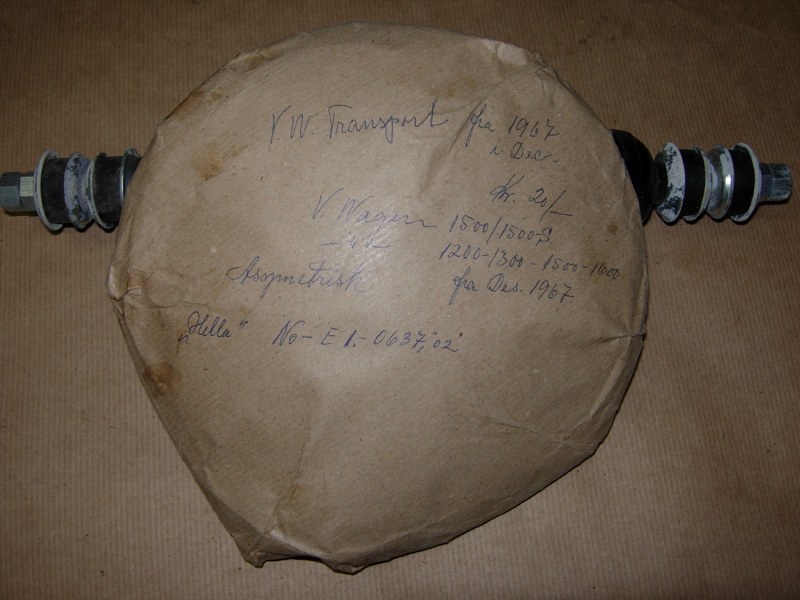 V.W. Transport fra 1967
i Dec.
Kr. 20/-
V. Wagen 1500/1500-S
-"- 1200-1300-1500-1600
Asymetrisk fra Des. 1967
„Hella" No- E 1.- 0637, "02"